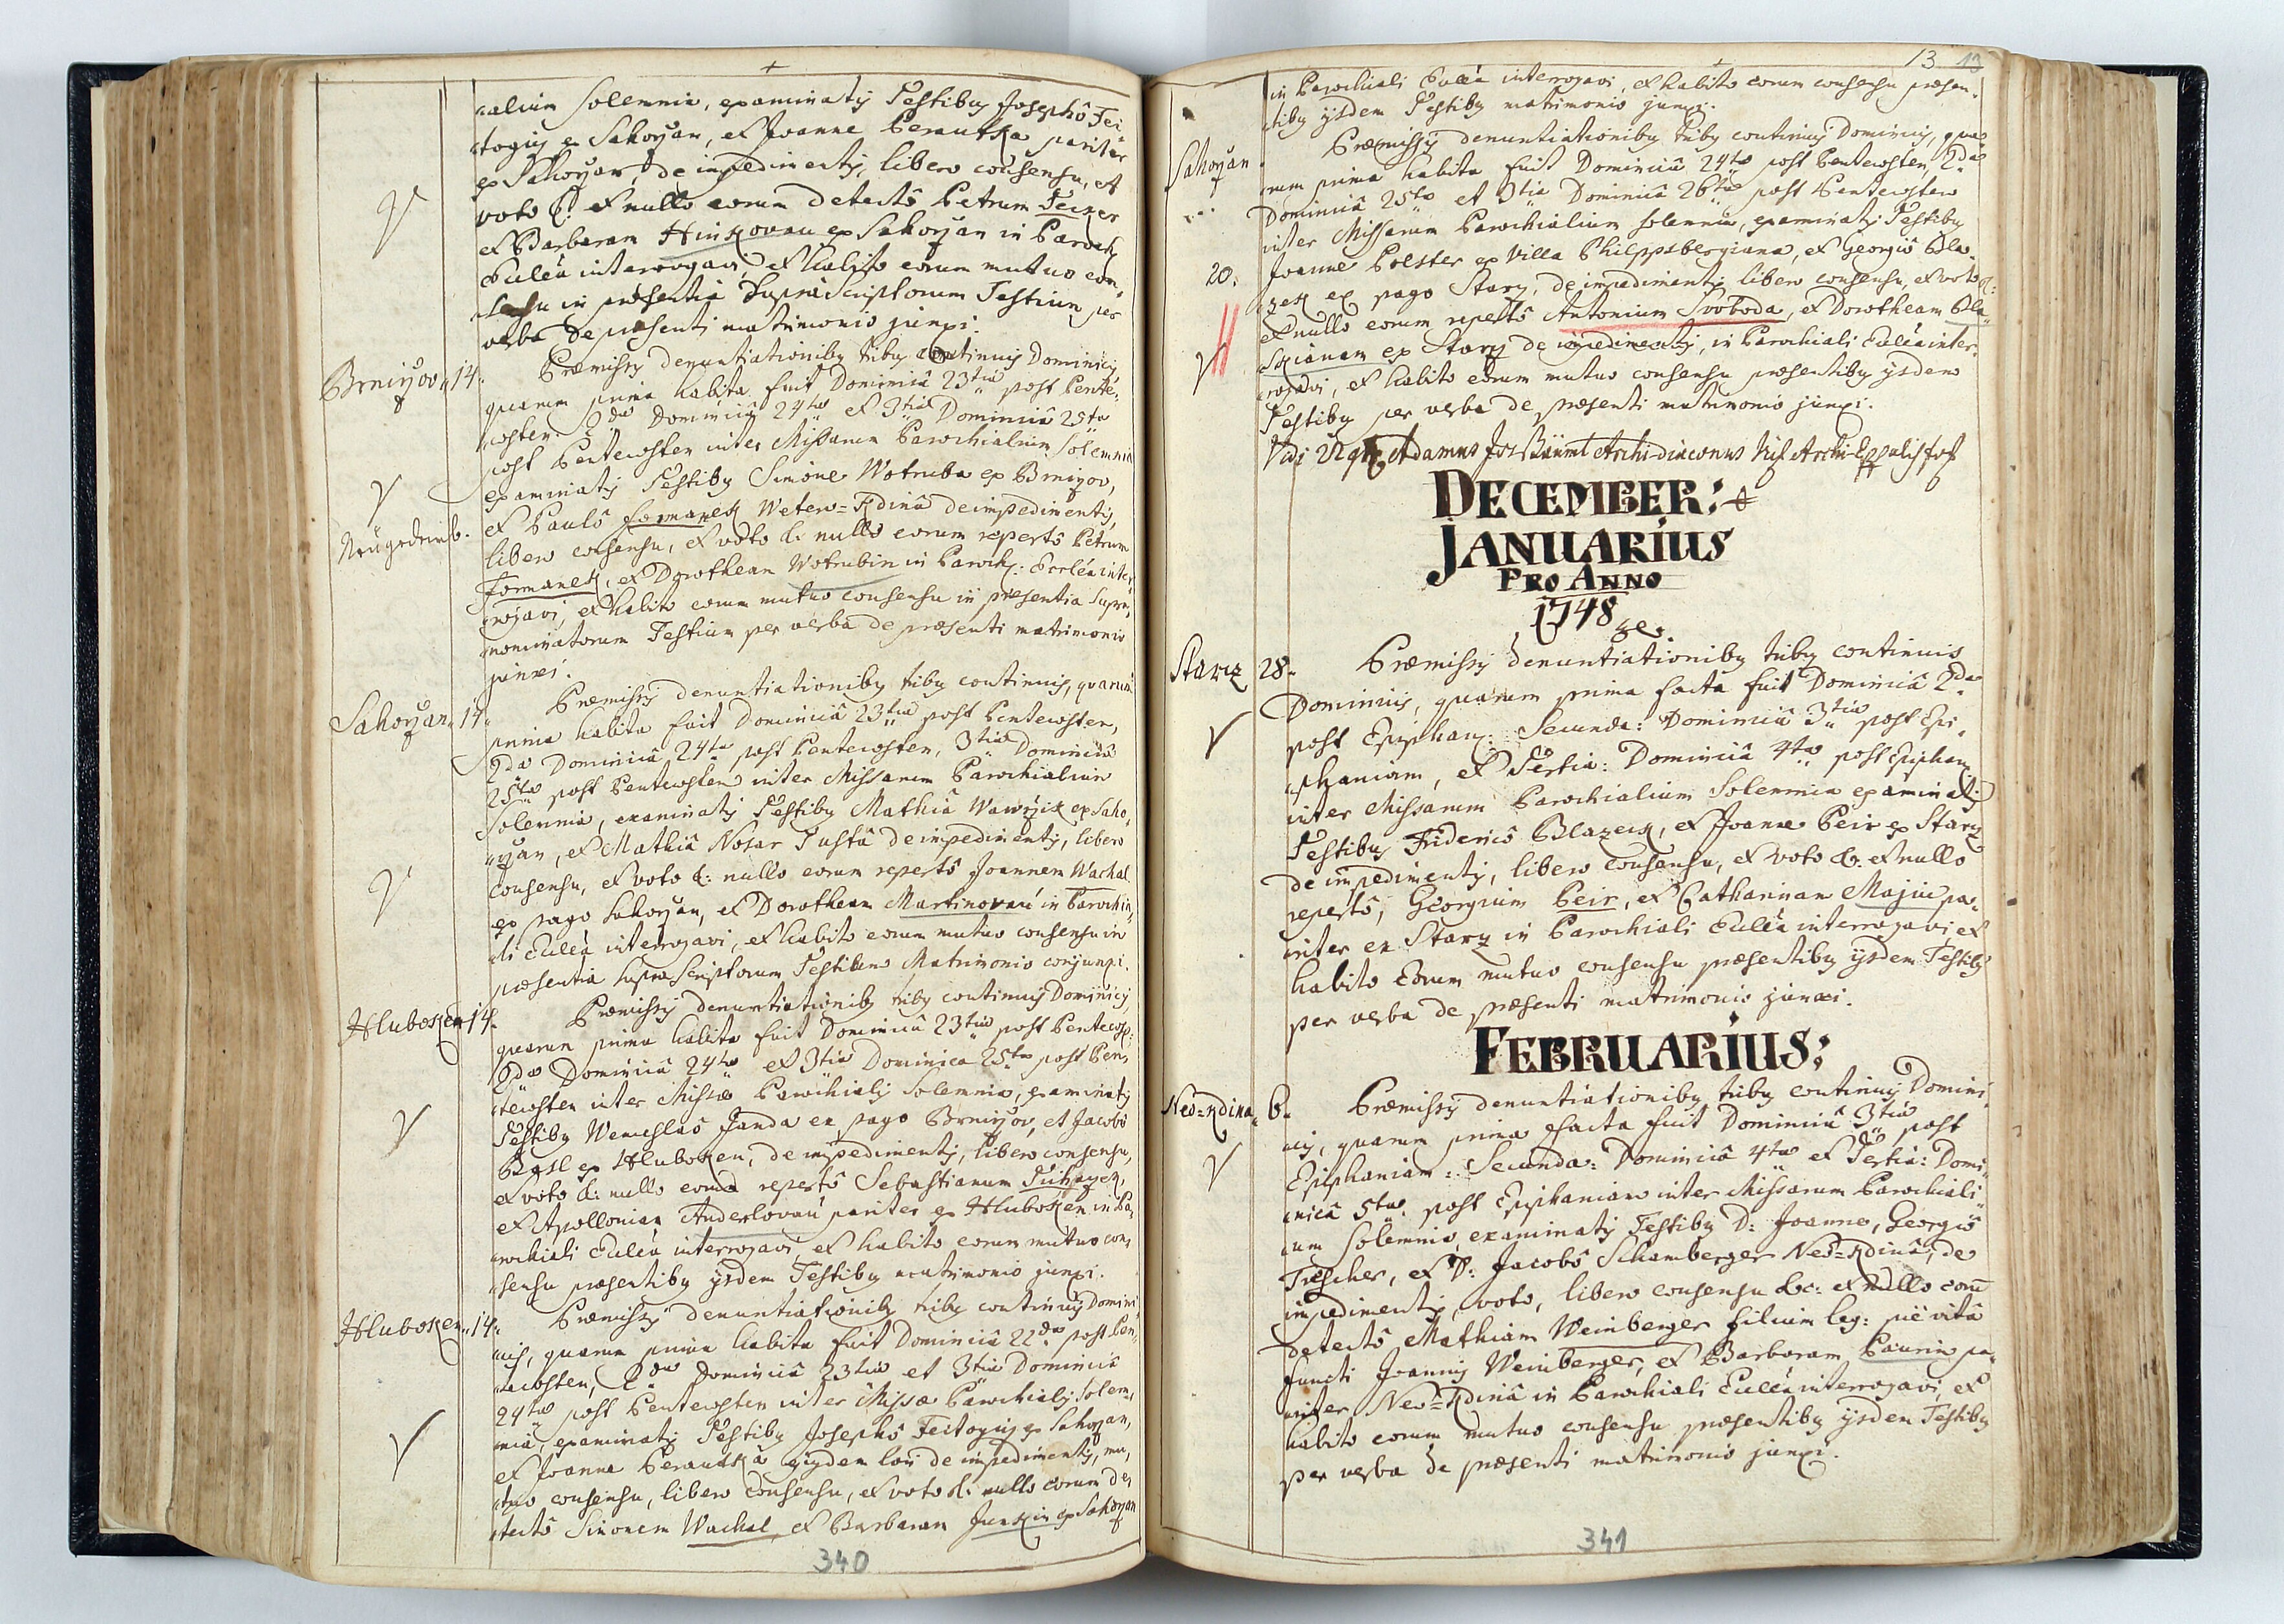 calium Solemnia, examinatis Testibus Josephô Fei
togius ex Sahorzan, et Joanne Berautka pariter
ex Sahorzan, de impedimentis, libero consensu, et
voto &: et nullo eorum detectô Petrum Feizer
et Barbaram Hinkovan ex Sahorzan in Paroch:
Ecclêa interrogavi, et habito eorum mutuo con,
sensu in præsentiâ supra Scriptorum Testium per
verba de præsenti matrimonio junxi.
Brnirzov 14. Præmissis denuntiationibus tribus continuis Dominicis,
quarum prima habita fuit Dominicâ 23tia post Pente,
costen. 2da Dominicâ 24ta et 3tia Dominicâ 25ta
post Pentecosten inter Missarum Parochialium Solemnia
examinatis Testibus Simone Wotruba ex Brnirzov,
et Paulô Formanek Wetero=Kdinâ de impedimentis,
Neugedeinb. libero consensu, et voto &: nullo eorum repertô Petrum
Formanek, et Dorotheam Wotrubin in Paroch: Ecclêa inter,
rogavi, et habito eorum mutuo consensu in præsentia supra,
nominatorum Testium per verba de præsenti matrimonio
junxi.
Sahorzan 14. Præmissis denuntiationibus tribus continuis, quarum
prima habita fuit Dominicâ 23tia post Pentecosten,
2da Dominicâ 24ta post Pentecosten, 3tia Dominicâ
25ta post Pentecosten inter Missarum Parochialium
Solemnia, examinatis Testibus Mathiâ Wawrzik ex Saho,
rzan, et Mathiâ Nosar Pustâ de impedimentis, libero
consensu, et voto &: nullo eorum repertô Joannem Wachal
ex pago Sahorzan, et Dorotheam Martinovan in Parochia,
li Ecclêa interrogavi, et habito eorum mutuo consensu in
præsentia supra Scriptorum Testium Matrimonio conjunxi.
Hluboken 14. Præmissis denuntiationibus tribus continuis Dominicis,
quarum prima habita fuit Dominicâ 23tia post Pentecos:
2da Dominicâ 24ta et 3tia Dominica 25ta post Pen,
tecosten inter Missæ Parochialis Solemnia, examinatis
Testibus Wenceslaô Janda ex pago Brnirzov, et Jacobô
Bastl ex Hluboken, de impedimentis, libero consensu,
et voto &: nullo eorum repertô Sebastianum
et Apolloniam Anderlovan pariter ex Hluboken in Pa,
rochiali Ecclêa interrogavi, et habito eorum mutuo con,
sensu præsentibus ijsdem Testibus matrimonio junxi.
Hluboken 14. Præmissis denuntiationibus tribus continuis Domini,
cis, quarum prima habita fuit Dominicâ 22da post Pen,
tecosten, 2da Dominicâ 23tia et 3tia Dominicâ
24ta post Pentecosten inter Missæ Parochialis Solem,
nia, examinatis Testibus Josephô Feitogius ex Sahorzan,
et Joanne Berautkâ ejusdem loci de impedimentis, mu,
tuo consensu, libero consensu, et voto &: nullo eorum de,
tectô Simonem Wachal, et Barbaram Junkin ex Sahorzan
340
13 13
in Parochiali Ecclêa interrogavi, et habito eorum consensu præsen,
tibus ijsdem Testibus matrimonio junxi.
Sahorzan Præmissis denuntiationibus tribus continuis Dominicis, qua,
rum prima habita fuit Dominicâ 24ta post Pentecosten, 2da
Dominicâ 25ta et 3tia Dominicâ 26ta post Pentecosten
inter Missarum Parochialium solemnia, examinatis Testibus
20. Joanne Polster ex Villa Philippsbergiana, et Georgiô Bla,
zek ex pago Starz, de impedimentis, libero consensu, et voto &:
et nullo eorum repertô Antonium Svoboda, et Dorotheam Bla,
skianam ex Starz de impedimentis, in Parochiali Ecclêa inter,
rogavi, et habito eorum mutuo consensu præsentibus ijsdem
Testibus per verba de præsenti matrimonio junxi.
Vidi Adamus Jos: Bäuml Archi-diaconus
DECEMBER: &
JANUARIUS
PRO ANNO
1748
Starz 28. Præmissis denuntiationibus tribus continuis
Dominicis, quarum prima facta fuit Dominicâ 2da
post Epiphan: Secunda: Dominicâ 3tia post Epi,
phaniam, et Tertia: Dominicâ 4ta post Epiphan:
inter Missarum Parochialium Solemnia examinatis
Testibus Fridericô Blazek, et Joanne Peir ex Starz
de impedimentis, libero consensu, et voto &: et nullo
repertô, Georgium Peir, et Catharinam Majin pa,
riter ex Starz in Parochiali Ecclêa interrogavi et
habito Eorum mutuo consensu præsentibus ijsdem Testibus
per verba de præsenti matrimonio junxi.
FEBRUARIUS:
Neo=Kdina 6. Præmissis denuntiationibus tribus continuis Domini,
cis, quarum prima facta fuit Dominicâ 3tia post
Epiphaniam: Secunda: Dominicâ 4ta et Tertia: Domi,
nicâ 5ta post Epiphaniam inter Missarum Parochiali,
um Solemnia, examinatis Testibus D: Joanne, Georgiô
Trescher, et D: Jacobô Schamberger Neo=Kdinâ, de
impedimentis, voto, libero consensu &c: et nullo eorum
detectô Mathiam Weinberger filium leg: piè vitâ
functi Joannis Weinberger, et Barbaram Paurin pa,
riter Neo=Kdinâ in Parochiali Ecclêa interrogavi, et
habito eorum mutuo consensu præsentibus ijsdem Testibus
per verba de præsenti matrimonio junxi.
341